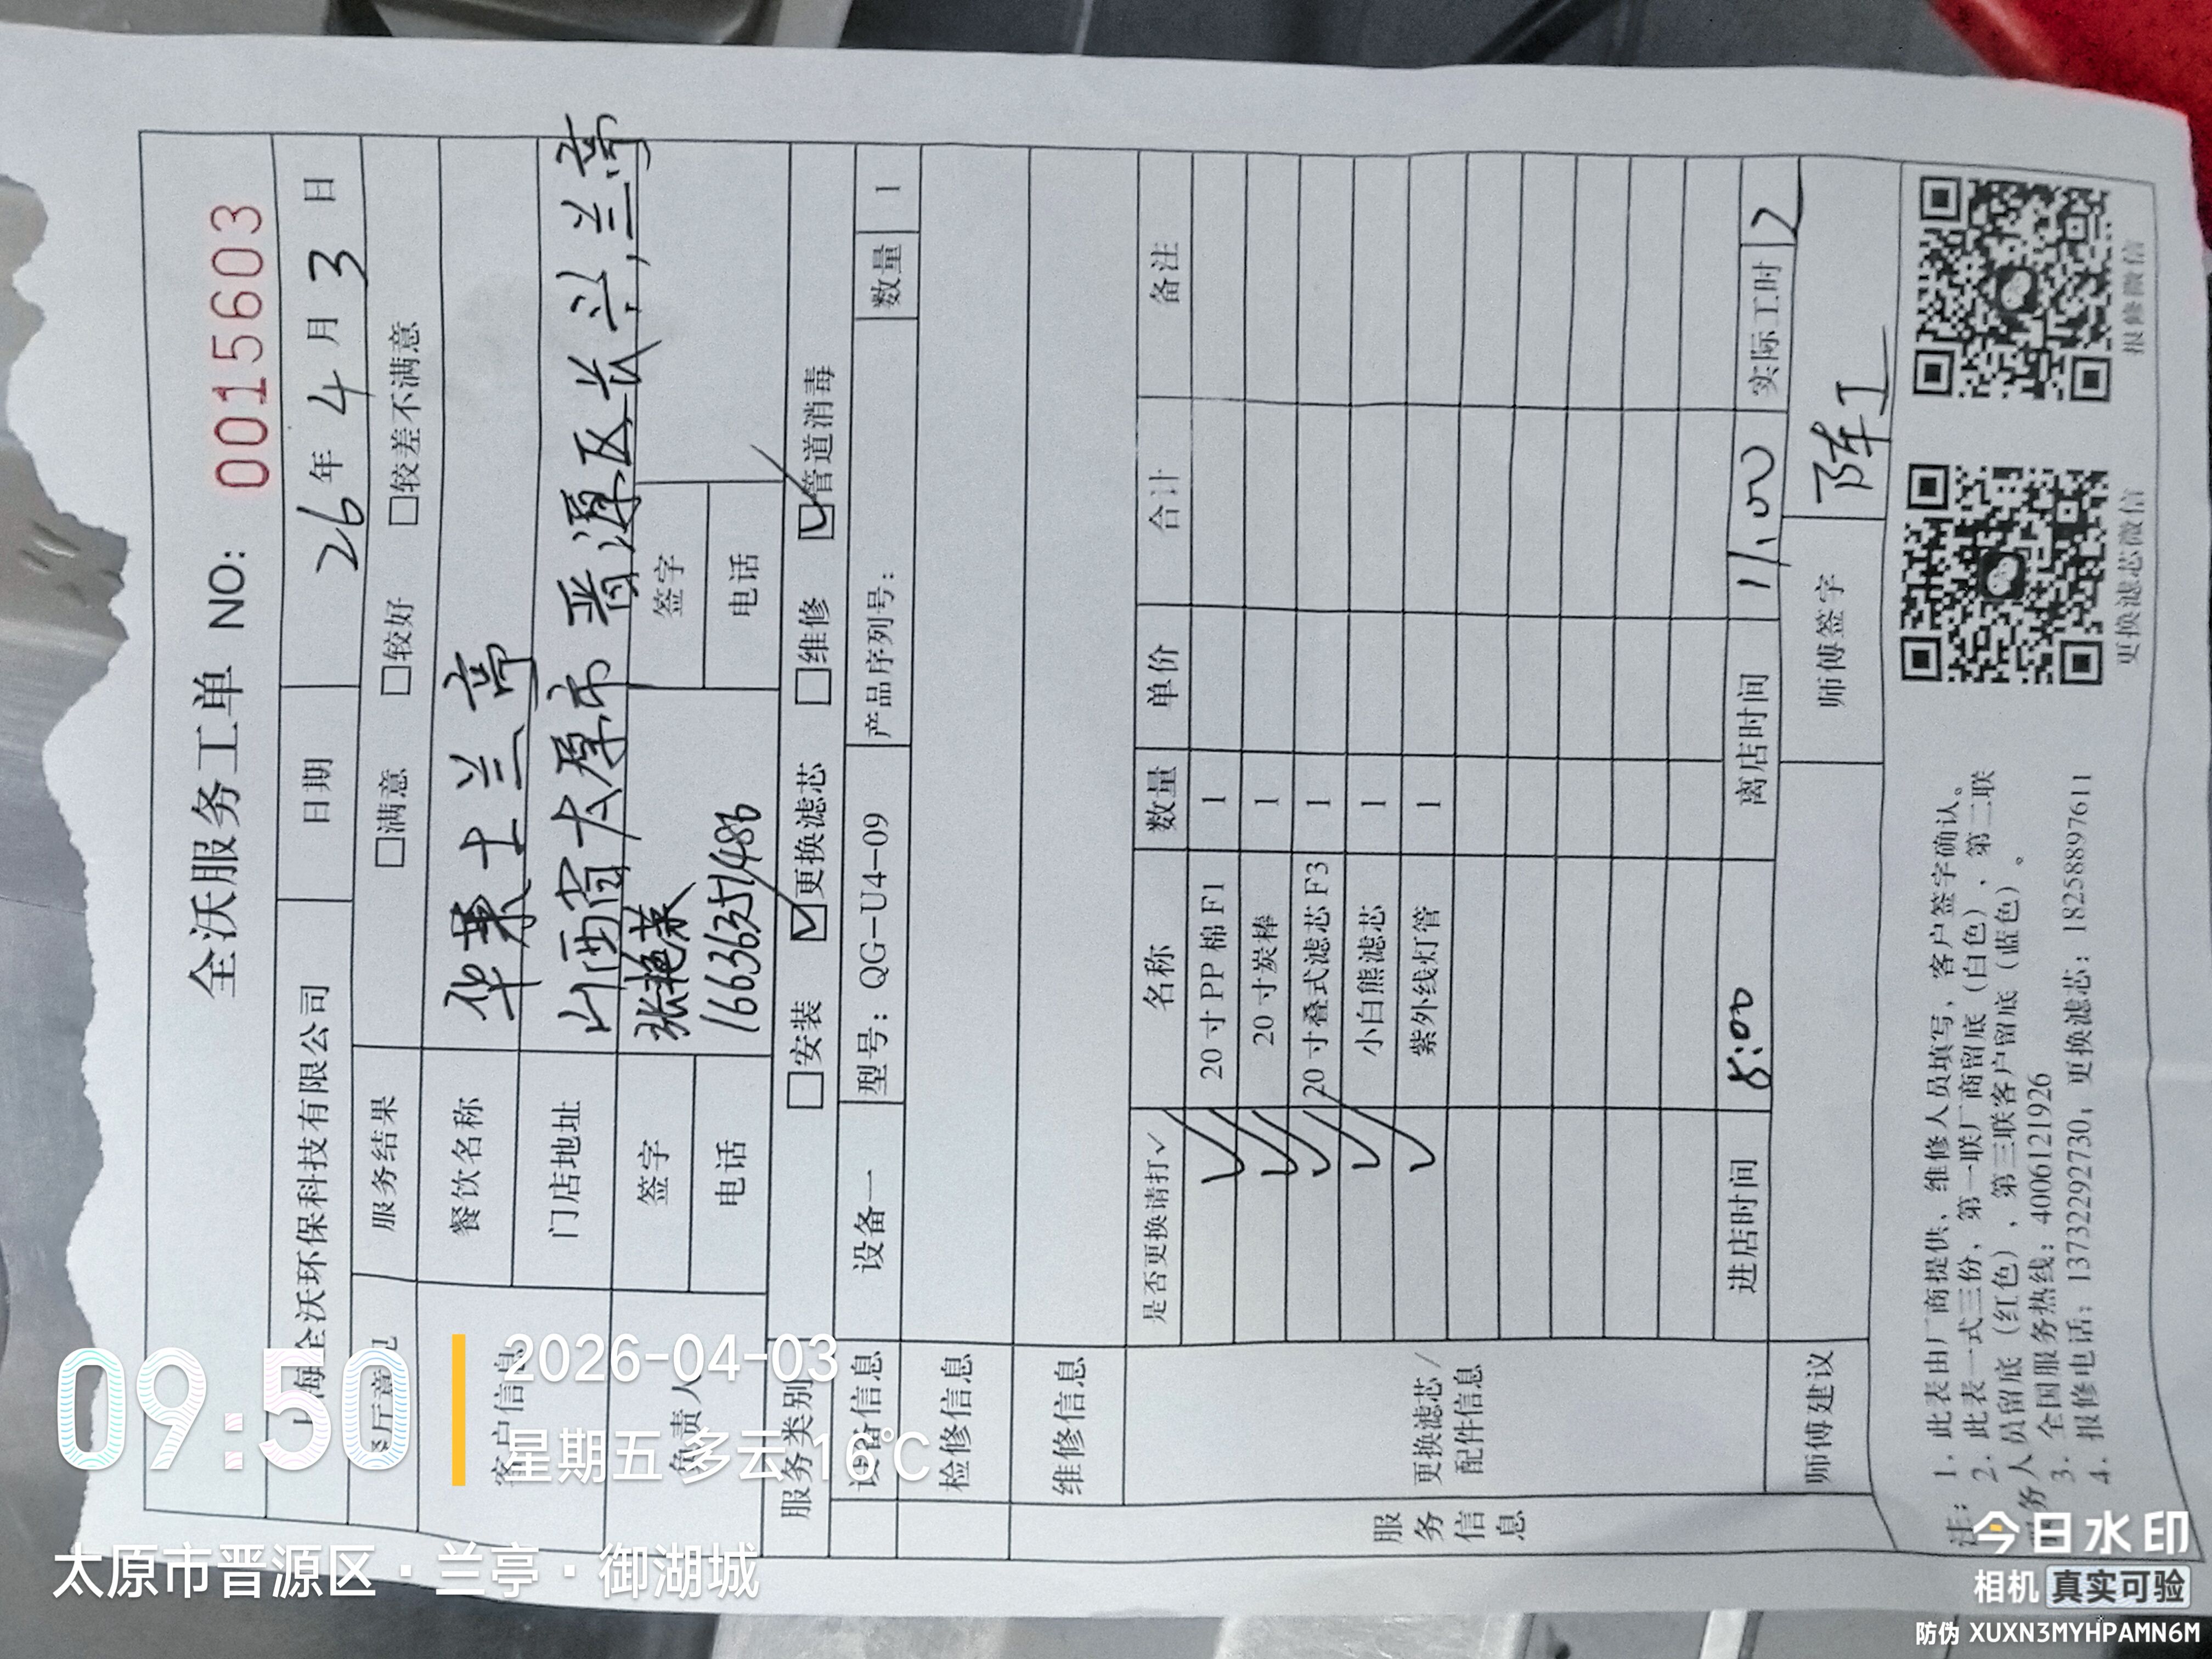 全沃服务工单 NO: 0015603
上海全沃环保科技有限公司 日期 26年4月3日
餐厅意见 服务结果 □满意 □较好 □较差不满意
客户信息 餐饮名称 华莱士兰亭
门店地址 山西省太原市晋源区长兴,兰亭
负责人 签字 张艳菜 签字
电话 16636351486 电话
服务类别 □安装 ☑更换滤芯 □维修 ☑管道消毒
设备信息 设备一 型号:QG-U4-09 产品序列号: 数量 1
检修信息
维修信息
服务信息
更换滤芯/配件信息
是否更换请打✓ 名称 数量 单价 合计 备注
✓ 20寸PP棉F1 1
✓ 20寸炭棒 1
✓ 20寸叠式滤芯F3 1
✓ 小白熊滤芯 1
✓ 紫外线灯管 1
进店时间 8:00 离店时间 11:00 实际工时 2
师傅建议 师傅签字 陈工
注:1. 此表由厂商提供、维修人员填写,客户签字确认。
2. 此表一式三份,第一联厂商留底(白色)、第二联
服务人员留底(红色)、第三联客户留底(蓝色)。
3. 全国服务热线:4006121926
4. 报修电话:13732292730,更换滤芯:18258897611
更换滤芯微信
报修微信
09:50
2026-04-03
星期五 多云 16℃
太原市晋源区·兰亭·御湖城
今日水印
相机 真实可验
防伪 XUXN3MYHPAMN6M